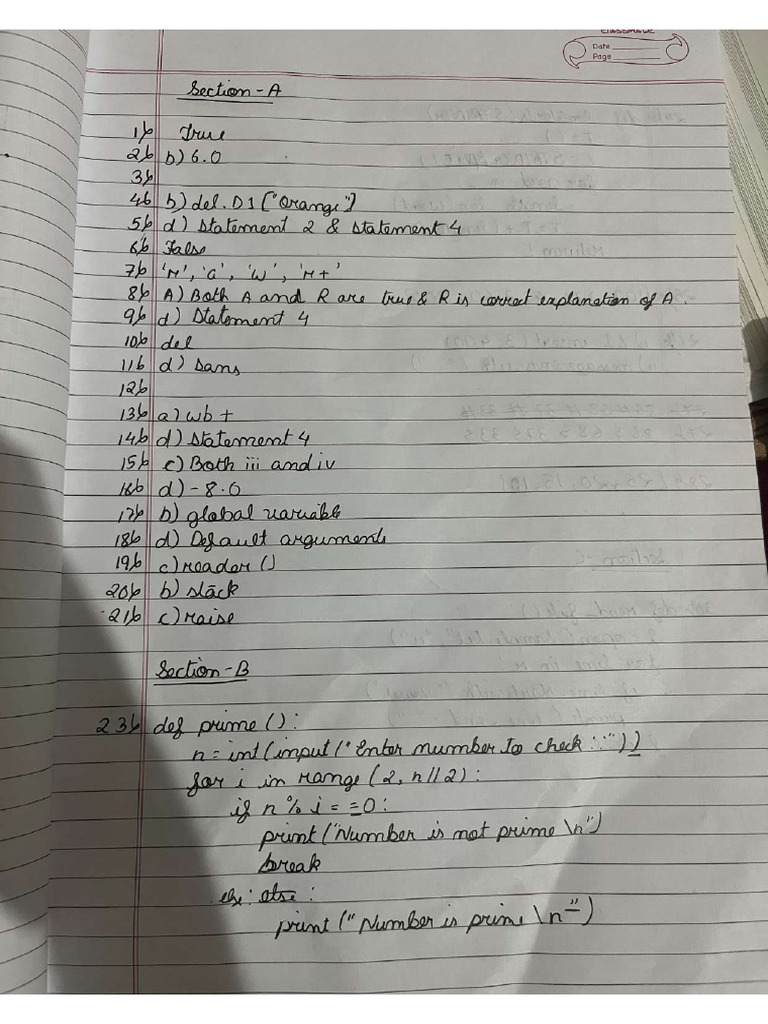 CLASSMATE
Date
Page
Section-A
1) True
2) b) 6.0
3)
4) b) del. D1 ["Orange"]
5) d) Statement 2 & Statement 4
6) False
7) 'r', 'a', 'w', 'r+'
8) A) Both A and R are true & R is correct explanation of A.
9) d) Statement 4
10) del
11) d) Sans
12)
13) a) wb +
14) d) Statement 4
15) c) Both iii and iv
16) d) - 8.0
17) b) global variable
18) d) Default arguments
19) c) reader ()
20) b) stack
21) c) raise
Section-B
23) def prime ():
n = int (input ("Enter number to check :"))
for i in range (2, n//2):
if n % i = =0:
print ("Number is not prime \n")
break
else: else :
print (" Number is prime \n")